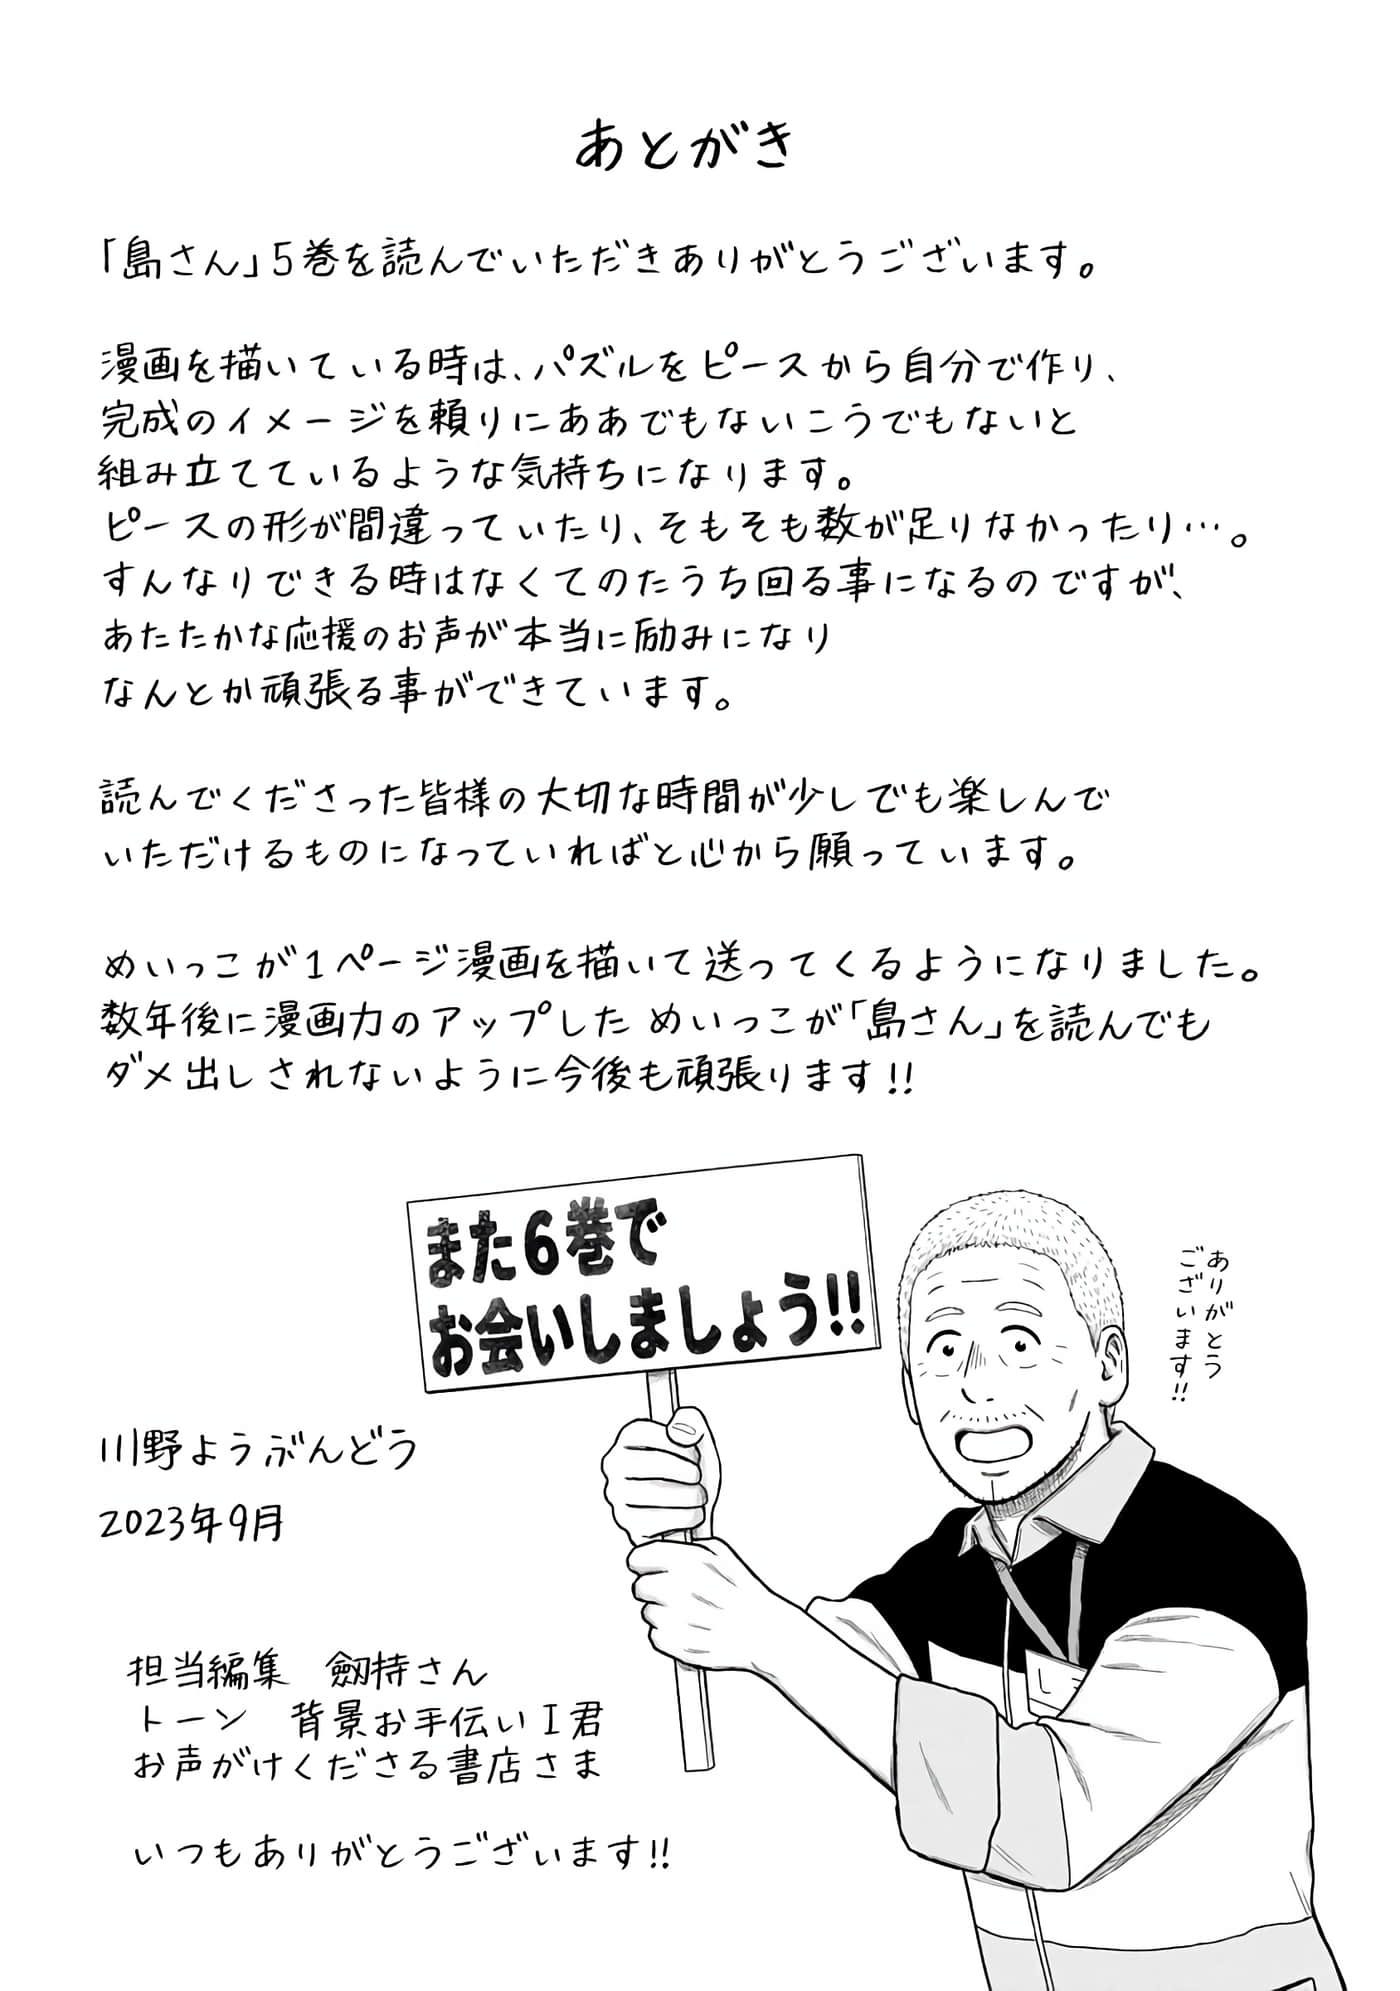 あとがき
「島さん」5巻を読んでいただきありがとうございます。
漫画を描いている時は、パズルをピースから自分で作り、
完成のイメージを頼りにああでもないこうでもないと
組み立てているような気持ちになります。
ピースの形が間違っていたり、そもそも数が足りなかったり…。
すんなりできる時はなくてのたうち回る事になるのですが、
あたたかな応援のお声が本当に励みになり
なんとか頑張る事ができています。
読んでくださった皆様の大切な時間が少しでも楽しんで
いただけるものになっていればと心から願っています。
めいっこが1ページ漫画を描いて送ってくるようになりました。
数年後に漫画力のアップした めいっこが「島さん」を読んでも
ダメ出しされないように今後も頑張ります!!
また6巻で
お会いしましょう!!
ありがとう
ございます!!
川野ようぶんどう
2023年9月
担当編集 劔持さん
トーン 背景お手伝いI君
お声がけくださる書店さま
いつもありがとうございます!!